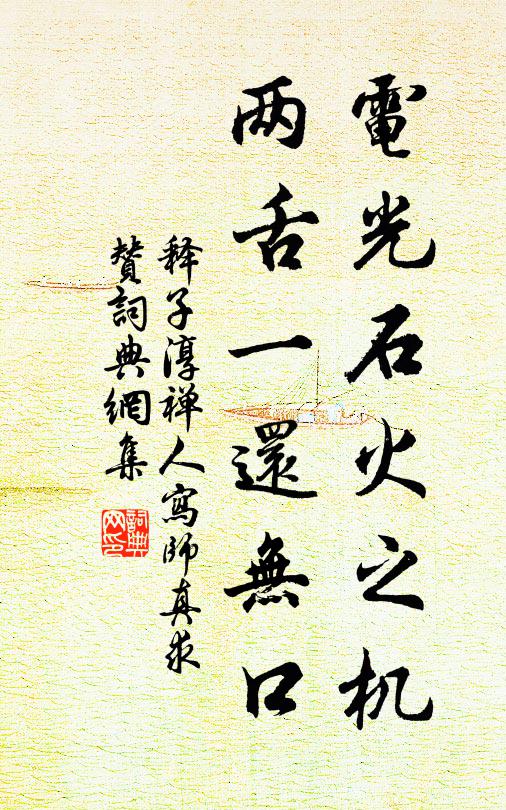 電光石火之机
两舌一還無口
释子淳禅人寫師真求
贊詞典網集
詞典网印